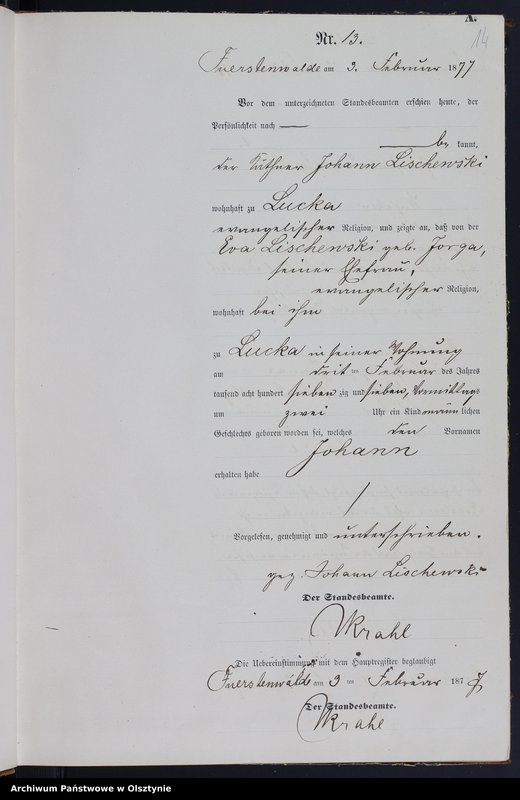 A.
14
Nr. 13.
Fuerstenwalde am 3. Februar 1877
Vor dem unterzeichneten Standesbeamten erschien heute, der
Persönlichkeit nach
be kannt,
der Käthner Johann Lischewski
wohnhaft zu Lucka
evangelischer Religion, und zeigte an, daß von der
Eva Lischewski geb. Jorga,
seiner Ehefrau,
evangelischer Religion,
wohnhaft bei ihm
zu Lucka in seiner Wohnung
am drit ten Februar des Jahres
tausend acht hundert sieben zig und sieben, Vormittags
um zwei Uhr ein Kind männ lichen
Geschlechts geboren worden sei, welches den Vornamen
Johann
erhalten habe
Vorgelesen, genehmigt und unterschrieben.
gez. Johann Lischewski
Der Standesbeamte.
Krahl
Die Uebereinstimmung mit dem Hauptregister beglaubigt
Fuerstenwalde am 3 ten Februar 1877
Der Standesbeamte.
Krahl
Archiwum Państwowe w Olsztynie